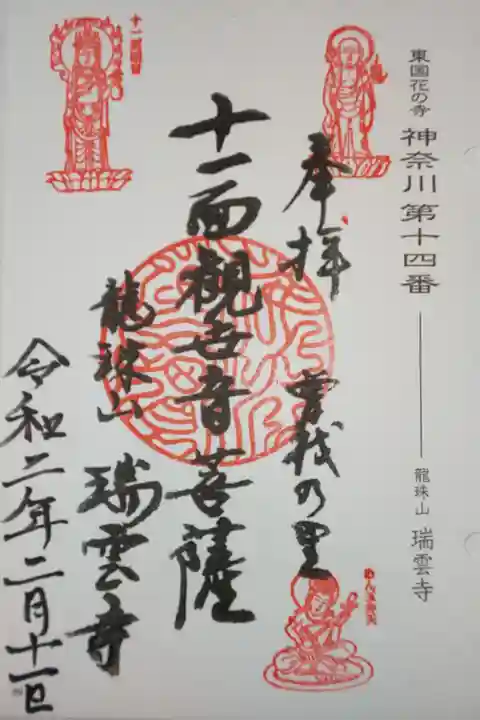 東国花の寺 神奈川第十四番 龍珠山 瑞雲寺
奉拝 曽我の里
十一面観世音菩薩
龍珠山 瑞雲寺
令和二年二月十一日